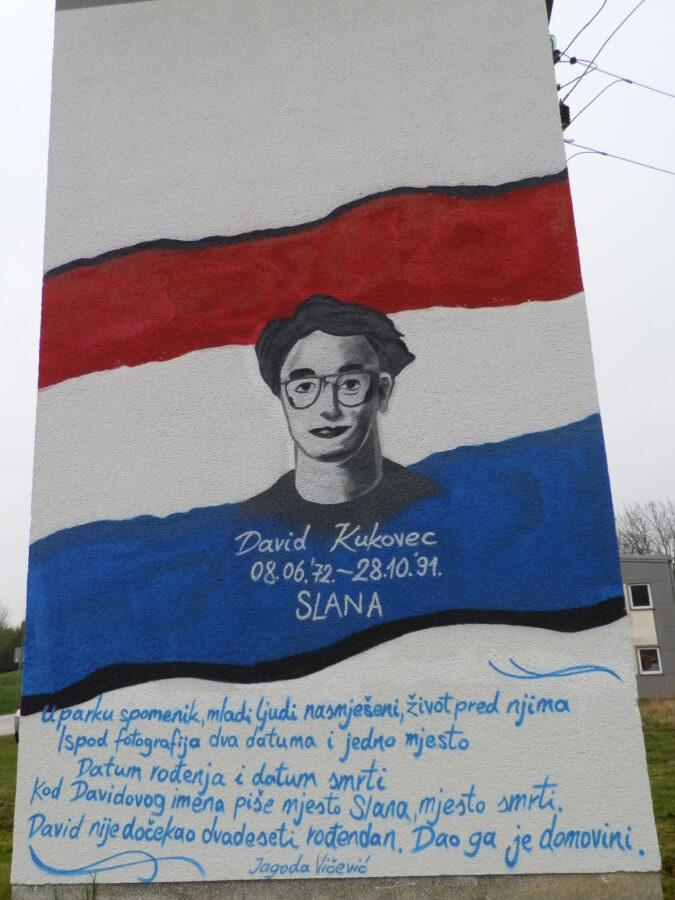 David Kukovec
08.06.'72.-28.10.'91.
SLANA
U parku spomenik, mladi ljudi nasmješeni, život pred njima
Ispod fotografija dva datuma i jedno mjesto
Datum rođenja i datum smrti
Kod Davidovog imena piše mjesto Slana, mjesto smrti.
David nije dočekao dvadeseti rođendan. Dao ga je domovini.
Jagoda Vičević